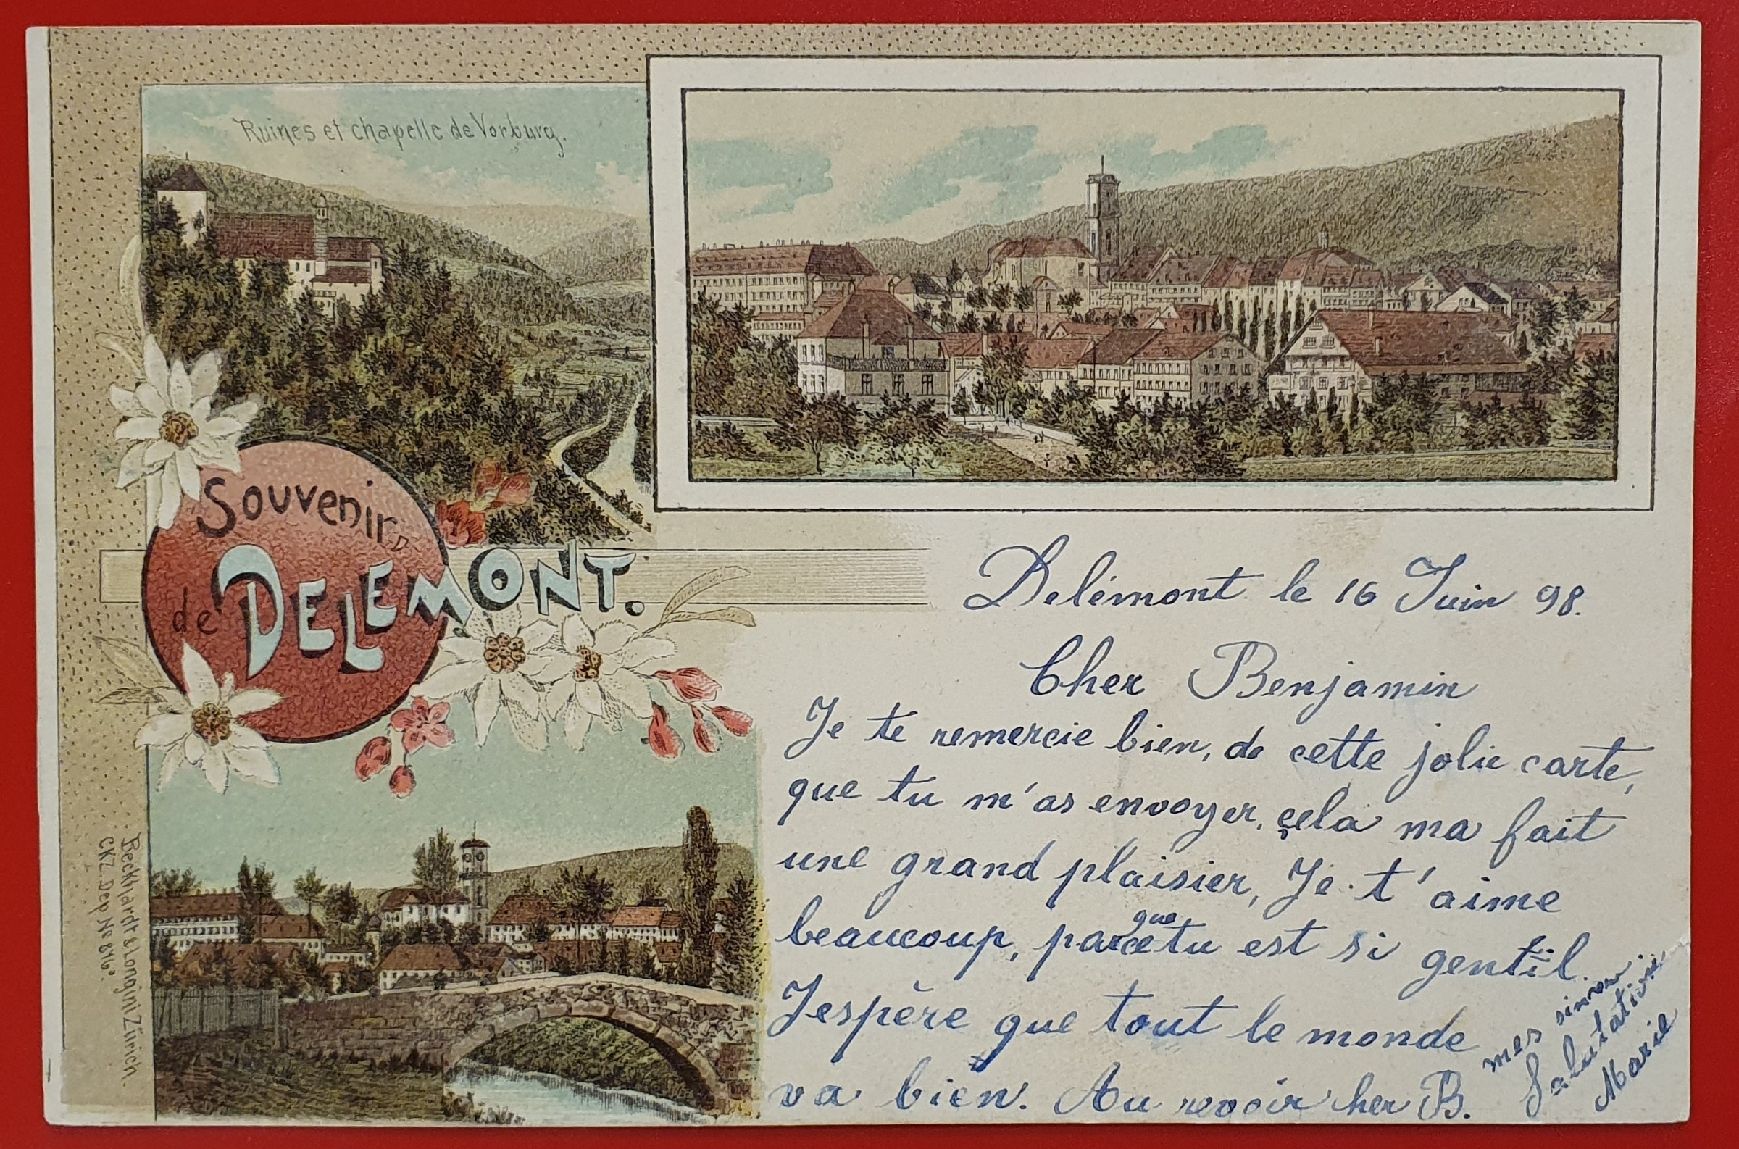 Ruines et chapelle de Vorburg.
Souvenir
de DELEMONT.
Delémont le 16 Juin 98.
Cher Benjamin
Je te remercie bien, de cette jolie carte,
que tu m'as envoyer, cela ma fait
une grand plaisier, Je t'aime
beaucoup, parce que tu est si gentil.
J'espère que tout le monde
va bien. Au revoir cher B.
mes
Salutations
Marie
Reckhardt & Longini Zürich.
CKZ. Dep. № 846